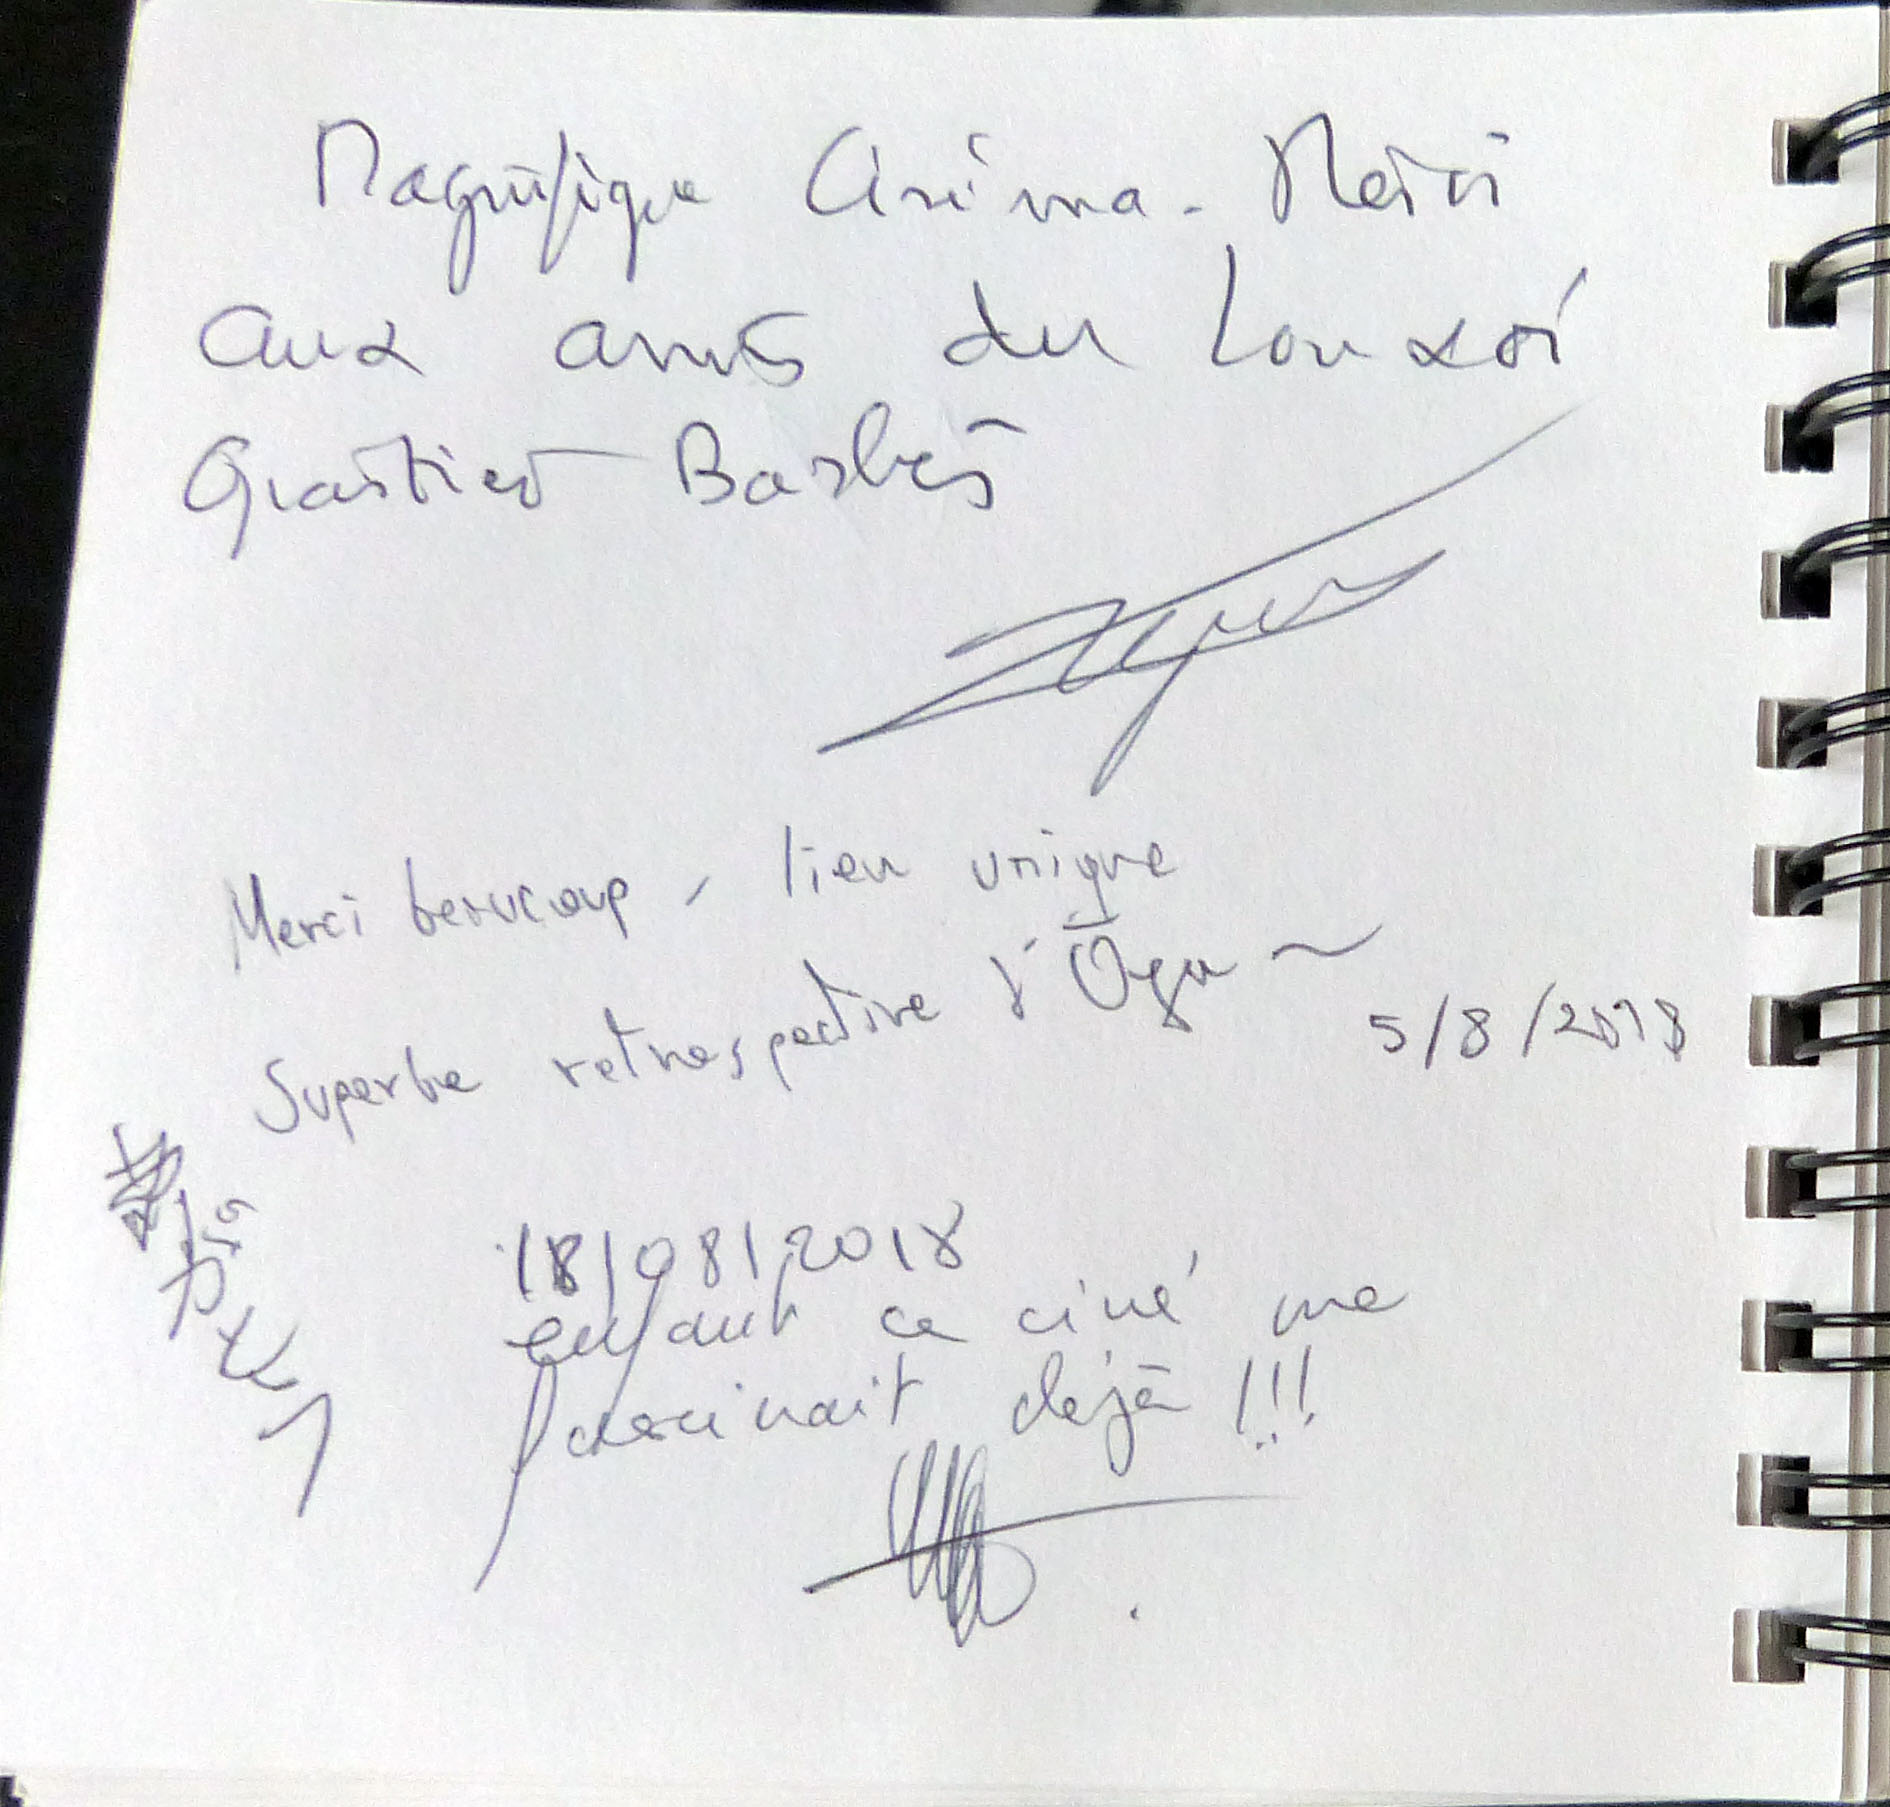 Magnifique Cinéma - Merci
aux amis du Louxor
Quartier Barbès
Merci beaucoup - lieu unique
Superbe retrospective d'Ozu ~
5/8/2018
18/08/2018
enfant ce ciné me
fascinait déjà !!!